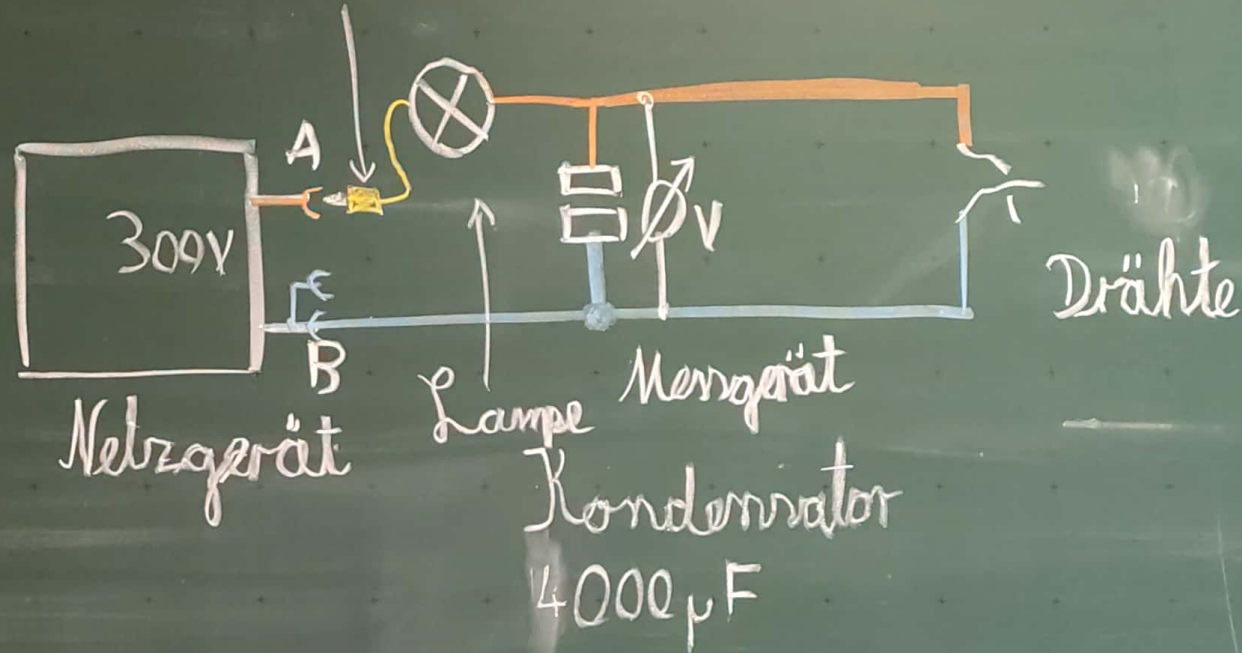 A
300V
V
Drähte
B
Messgerät
Lampe
Netzgerät
Kondensator
4000µF